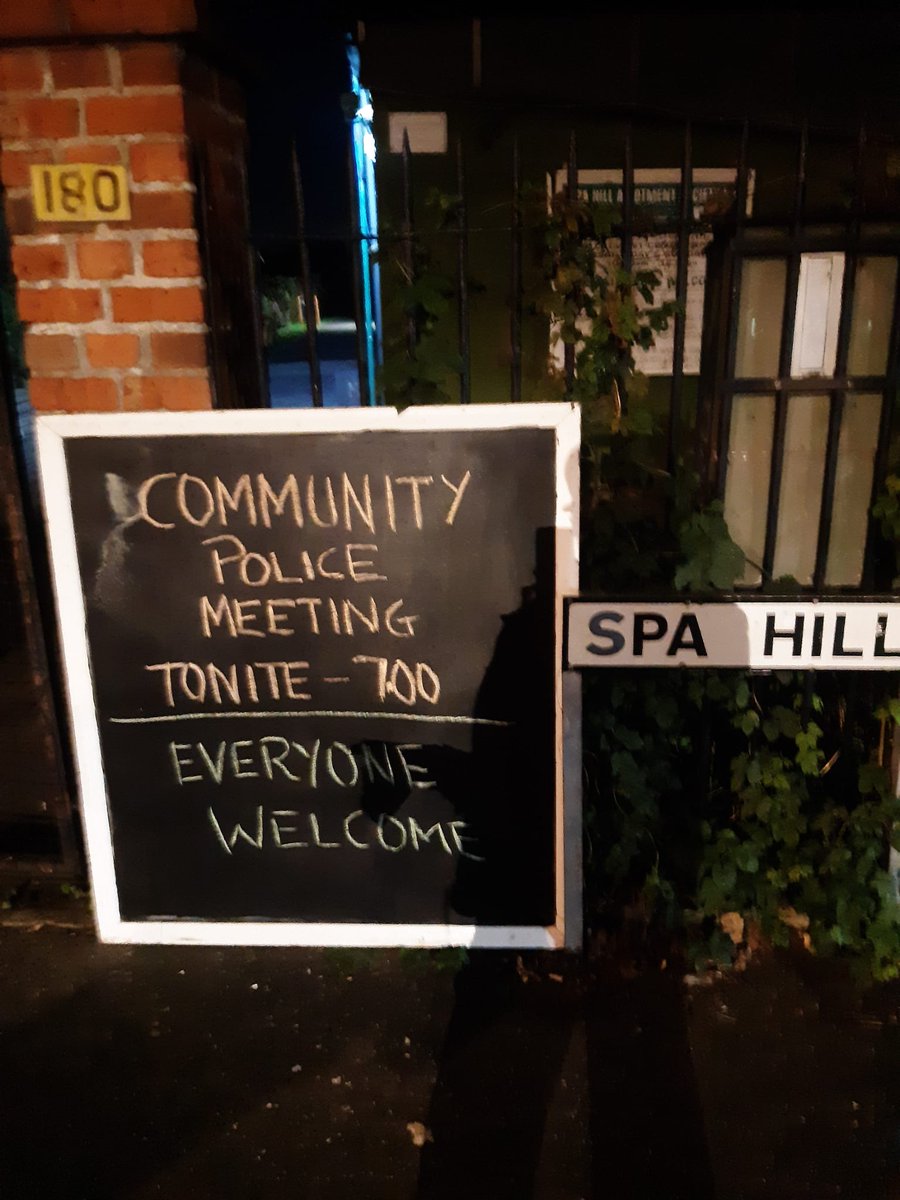 180
SPA HILL ALLOTMENT SOCIETY
COMMUNITY
POLICE
MEETING
TONITE - 7.00
EVERYONE
WELCOME
SPA HILL